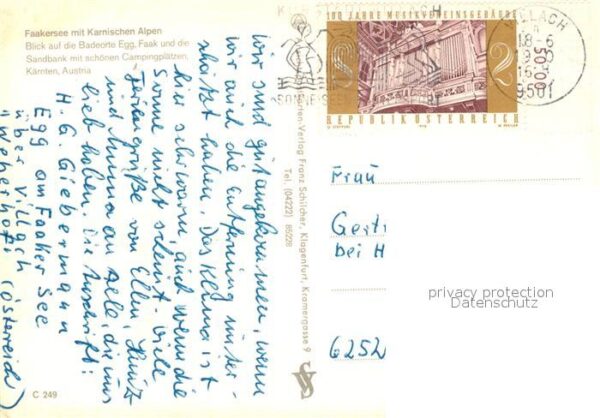 Faakersee mit Karnischen Alpen
Blick auf die Badeorte Egg, Faak und die
Sandbank mit schönen Campingplätzen,
Kärnten, Austria
Wir sind gut angekommen, wenn
wir auch die Entfernung unter-
schätzt haben. Das Klima ist
hier schwarm, auch wenn die
Sonne nicht scheint. Viele
Feriengrüße von Ellen, Heinz
und Anna an Alle, die uns
lieb haben. Die Anschrift:
H. G. Giebermann
Egg am Faaker See
über Villach
"Weberhof" (Österreich)
C 249
Ferien-Verlag Franz Schilcher, Klagenfurt, Kramergasse 9
Tel. (04222) 85228
100 JAHRE MUSIKVEREINSGEBÄUDE
S 2
REPUBLIK ÖSTERREICH
VILLACH
18-6
19
16
9501
5000
Frau
Gerti
bei H
6252
privacy protection
Datenschutz